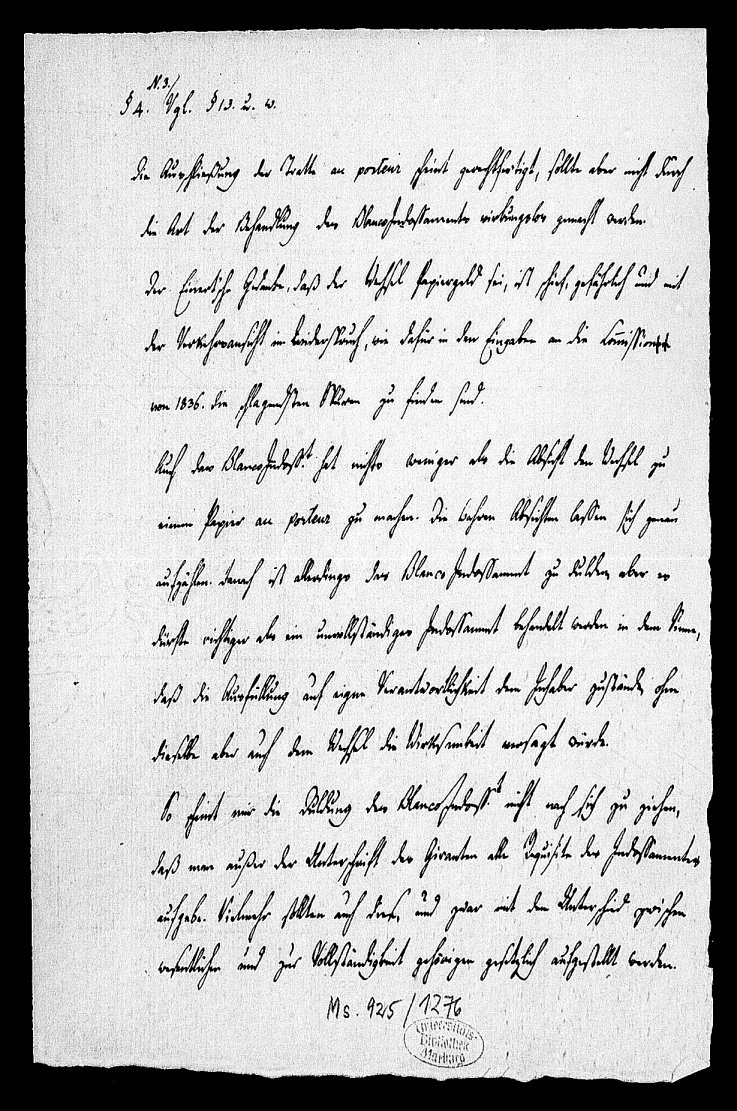 N. 3./
§ 4. Vgl. § 13. u. w.
Die Ausschließung der Tratte au porteur scheint gerechtfertigt, sollte aber nicht durch
die Art der Behandlung des Blancoindossaments wirkungslos gemacht werden.
Der Einert'sche Gedanke, daß der Wechsel Papiergeld sei, ist schief, gefährlich und mit
der Verkehrsansicht im Widerspruch, wie dafür in den Eingaben an die Commission
von 1836. die schlagendsten Spuren zu finden sind.
Auch das BlancoIndoss.t hat nichts weniger als die Absicht den Wechsel zu
einem Papier au porteur zu machen. Die wahren Absichten lassen sich genau
aufzählen. Danach ist allerdings das Blanco Indossament zu dulden, aber es
dürfte richtiger als ein unvollständiges Indossament behandelt werden in dem Sinne,
daß die Ausfüllung auf eigne Verantwortlichkeit dem Inhaber zustände, ohne
dieselbe aber auch dem Wechsel die Wirksamkeit versagt würde.
So scheint mir die Duldung des BlancoIndoss.t nicht nach sich zu ziehen,
daß man außer der Unterschrift des Giranten alle Requisite des Indossamentes
aufgebe. Vielmehr sollten auch diese, und zwar mit dem Unterschied zwischen
wesentlichen und zur Vollständigkeit gehörigen gesetzlich aufgestellt werden.
Ms. 925/1276
Universitäts-
Bibliothek
Marburg